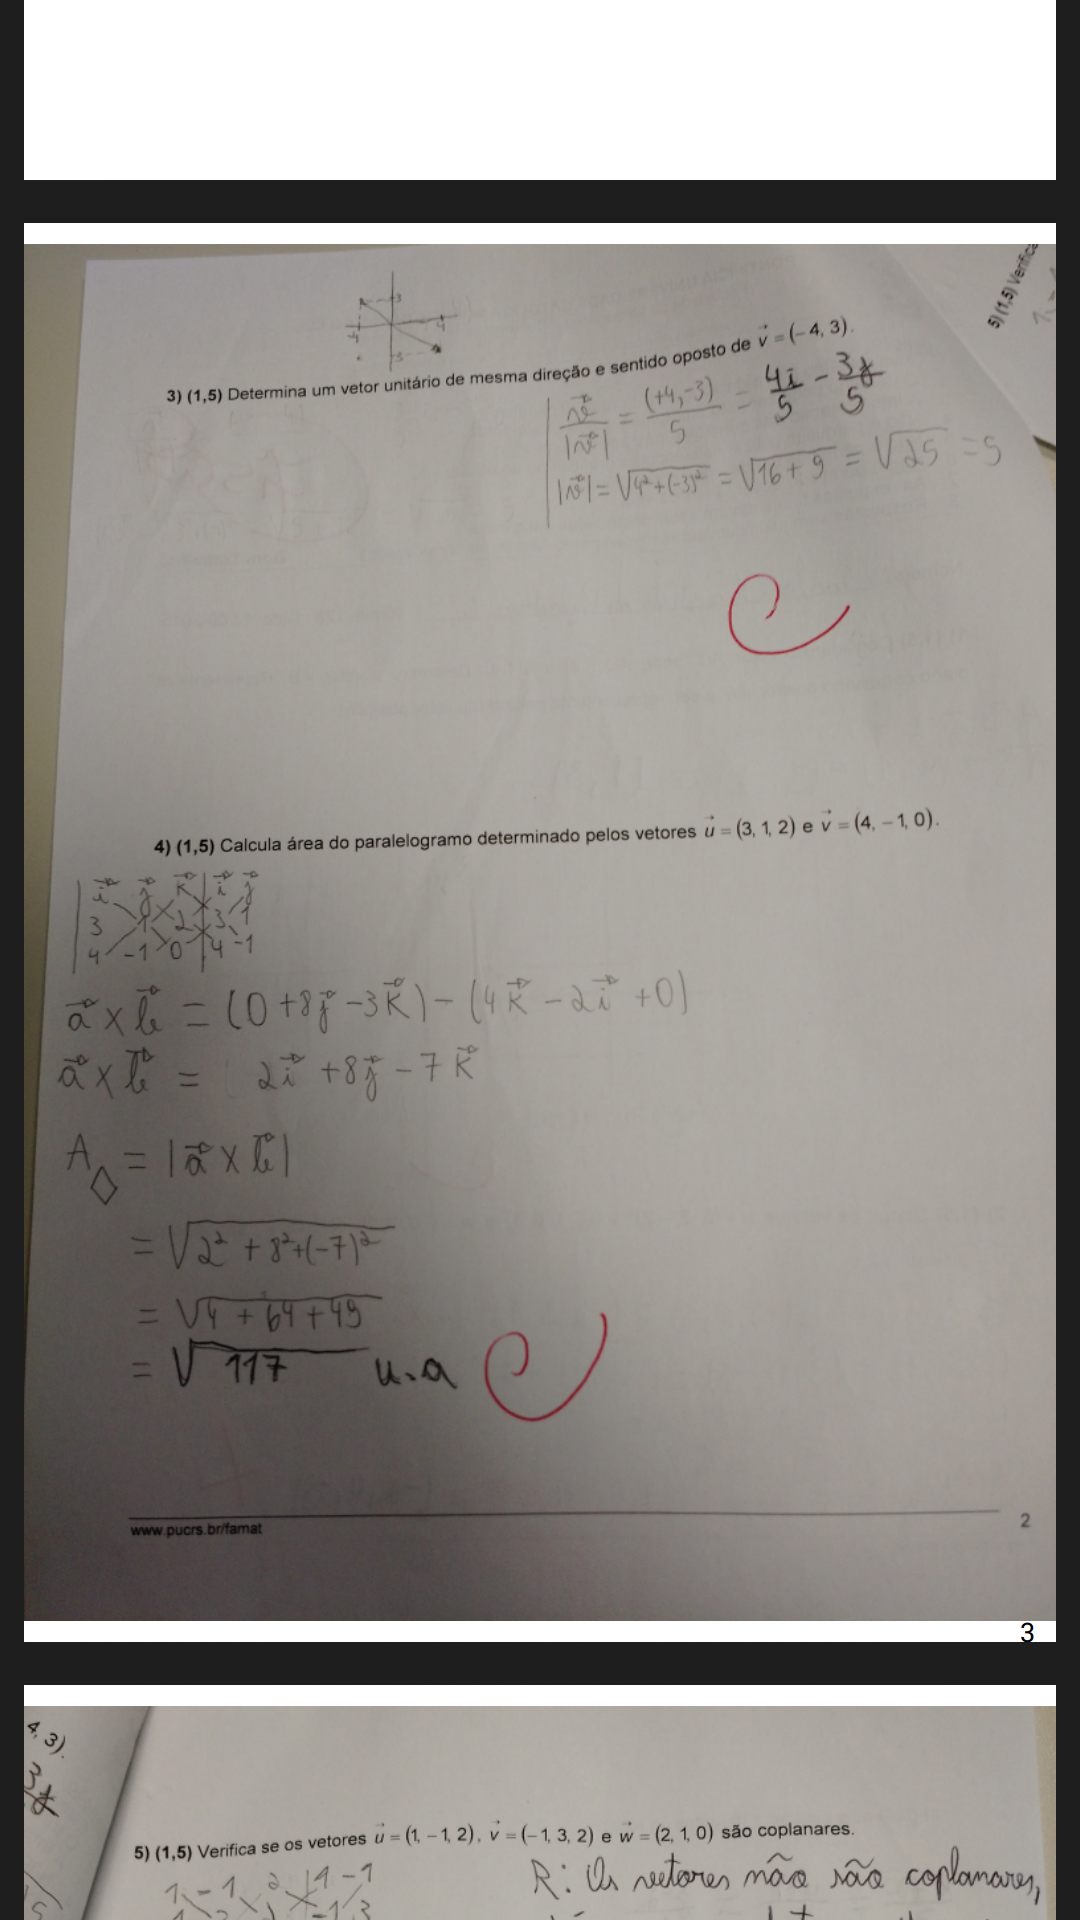 5) (1,5) Verifica
3
-4 4
-3
3) (1,5) Determina um vetor unitário de mesma direção e sentido oposto de v⃗ = (– 4, 3).
v⃗/|v⃗| = (+4,-3)/5 = 4i/5 - 3j/5
|v⃗| = √4²+(-3)² = √16+9 = √25 = 5
4) (1,5) Calcula área do paralelogramo determinado pelos vetores u⃗ = (3, 1, 2) e v⃗ = (4, – 1, 0).
i⃗ j⃗ k⃗ | i⃗ j⃗
3 1 2 | 3 1
4 -1 0 | 4 -1
a⃗ x b⃗ = (0 +8j⃗ -3k⃗) - (4k⃗ - 2i⃗ + 0)
a⃗ x b⃗ = 2i⃗ +8j⃗ - 7k⃗
A◇ = |a⃗ x b⃗|
= √2² + 8²+(-7)²
= √4 + 64 + 49
= √117 u.a
www.pucrs.br/famat 2
3
4, 3).
3j
5) (1,5) Verifica se os vetores u⃗ = (1, – 1, 2), v⃗ = (– 1, 3, 2) e w⃗ = (2, 1, 0) são coplanares.
R: Os vetores não são coplanares,
1 -1 2 | 1 -1